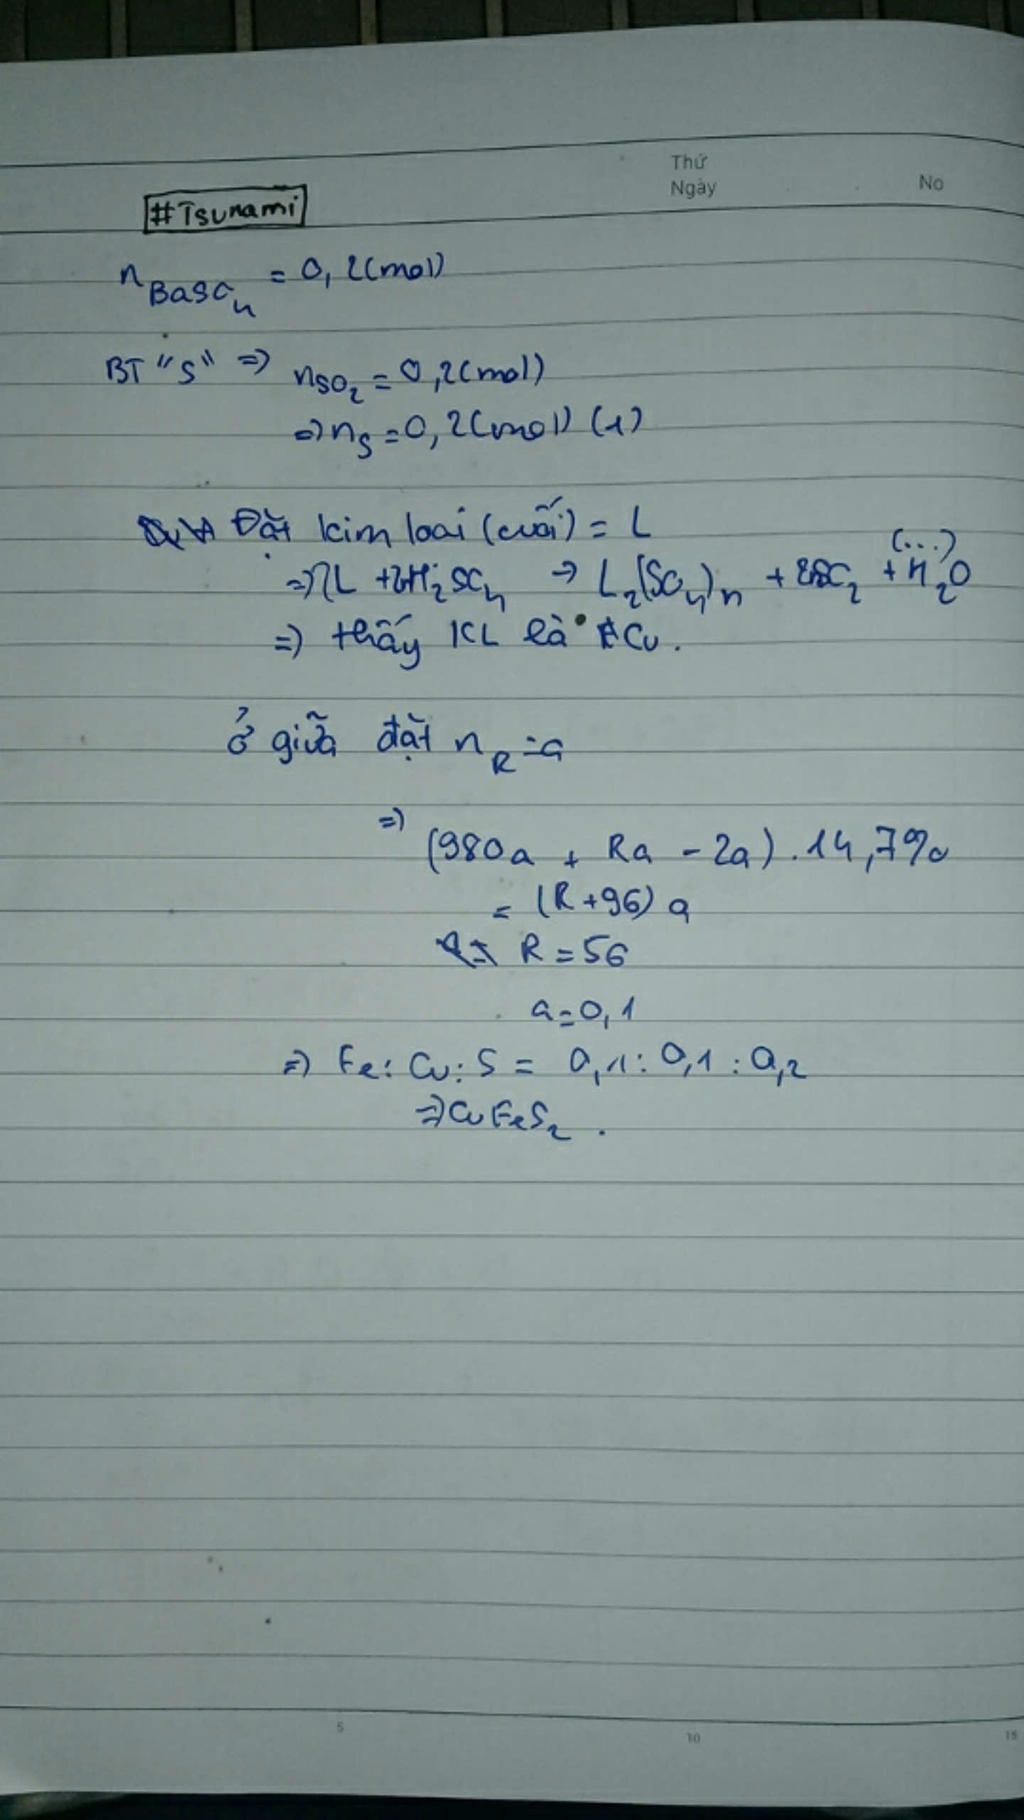 Thứ
Ngày
No
#Tsunami
n BaSO4 = 0,2(mol)
BT "S" => nSO2 = 0,2(mol)
=> nS = 0,2(mol) (1)
Đặt kim loại (cuối) = L
(...)
=> 2L + 2nH2SO4 → L2(SO4)n + nSO2 + H2O
=> thấy KL là Cu.
ở giữa đặt nR = a
=> (980a + Ra - 2a) . 14,7%
= (R+96) a
R = 56
a = 0,1
=> Fe : Cu : S = 0,1 : 0,1 : 0,2
=> CuFeS2 .
5 10 15